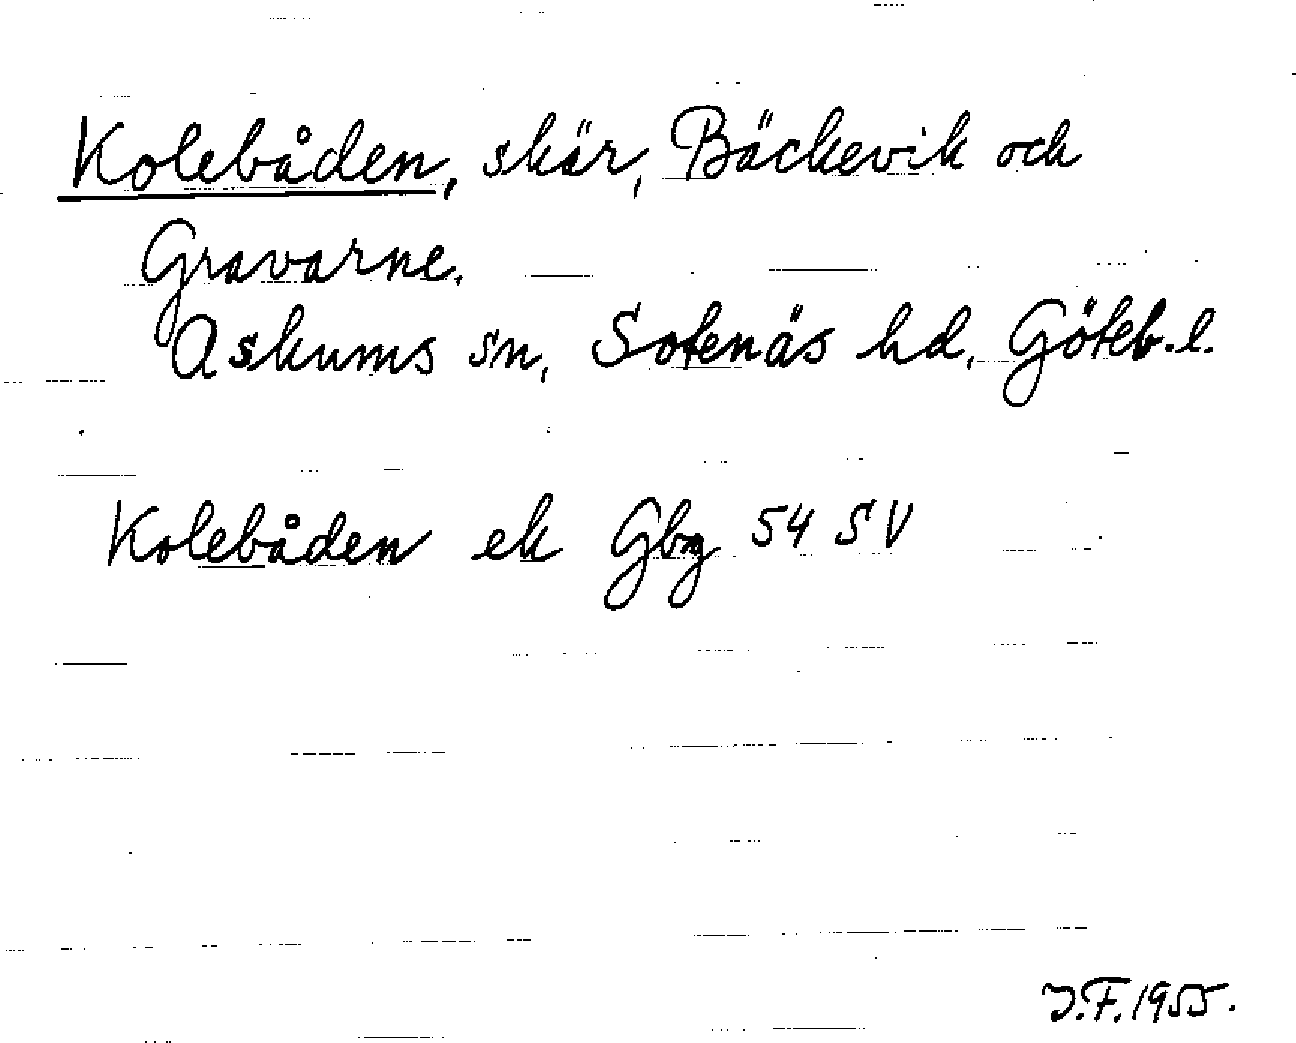 Kolebåden, skär, Bäckevik och
Gravarne.
Askums sn, Sotenäs hd, Göteb.l.
Kolebåden ek Gbg 54 SV
J.F. 1955.